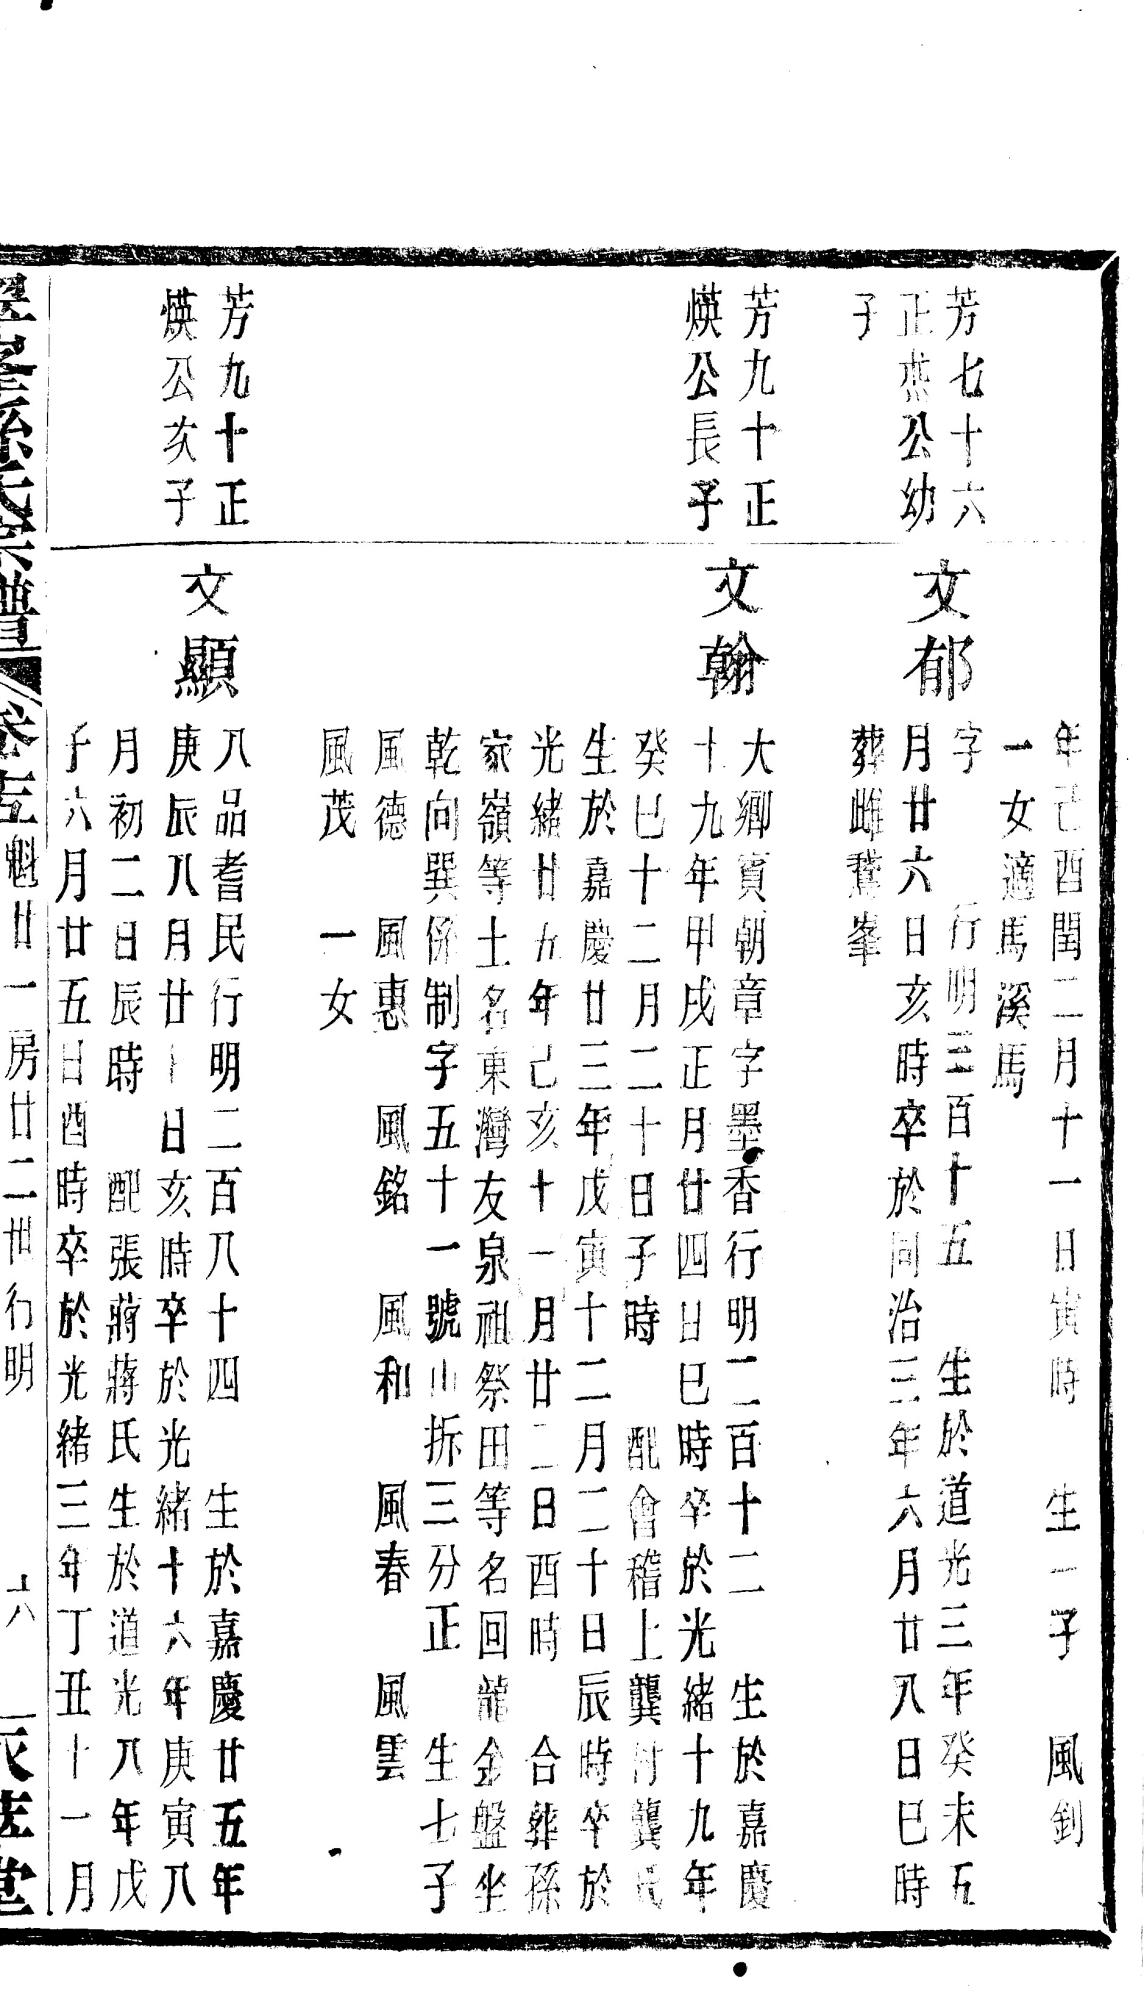 年己酉閏二月十一日寅時　生一子　風釗
一女適馬溪馬
芳七十六
正燕公幼
子
文郁
字　行明三百十五　生於道光三年癸未五
月廿六日亥時卒於同治三年六月廿八日巳時
葬雌鵞峯
芳九十正
煐公長子
文翰
大卿賓朝章字墨香行明二百十二　生於嘉慶
十九年甲戌正月廿四日巳時卒於光緒十九年
癸巳十二月二十日子時　配會稽上龔村龔氏
生於嘉慶廿三年戊寅十二月二十日辰時卒於
光緒廿五年己亥十一月廿二日酉時　合葬孫
家嶺等土名東灣友泉祖祭田等名回龍金盤坐
乾向巽係制字五十一號山拆三分正　生七子
風德　風惠　風銘　風和　風春　風雲
風茂　一女
芳九十正
煐公次子
文顯
八品耆民行明二百八十四　生於嘉慶廿五年
庚辰八月廿　日亥時卒於光緒十六年庚寅八
月初二日辰時　配張蔣蔣氏生於道光八年戊
子六月廿五日酉時卒於光緒三年丁丑十一月
孫氏宗譜　卷　魁廿一房廿二世行明　十六　堂